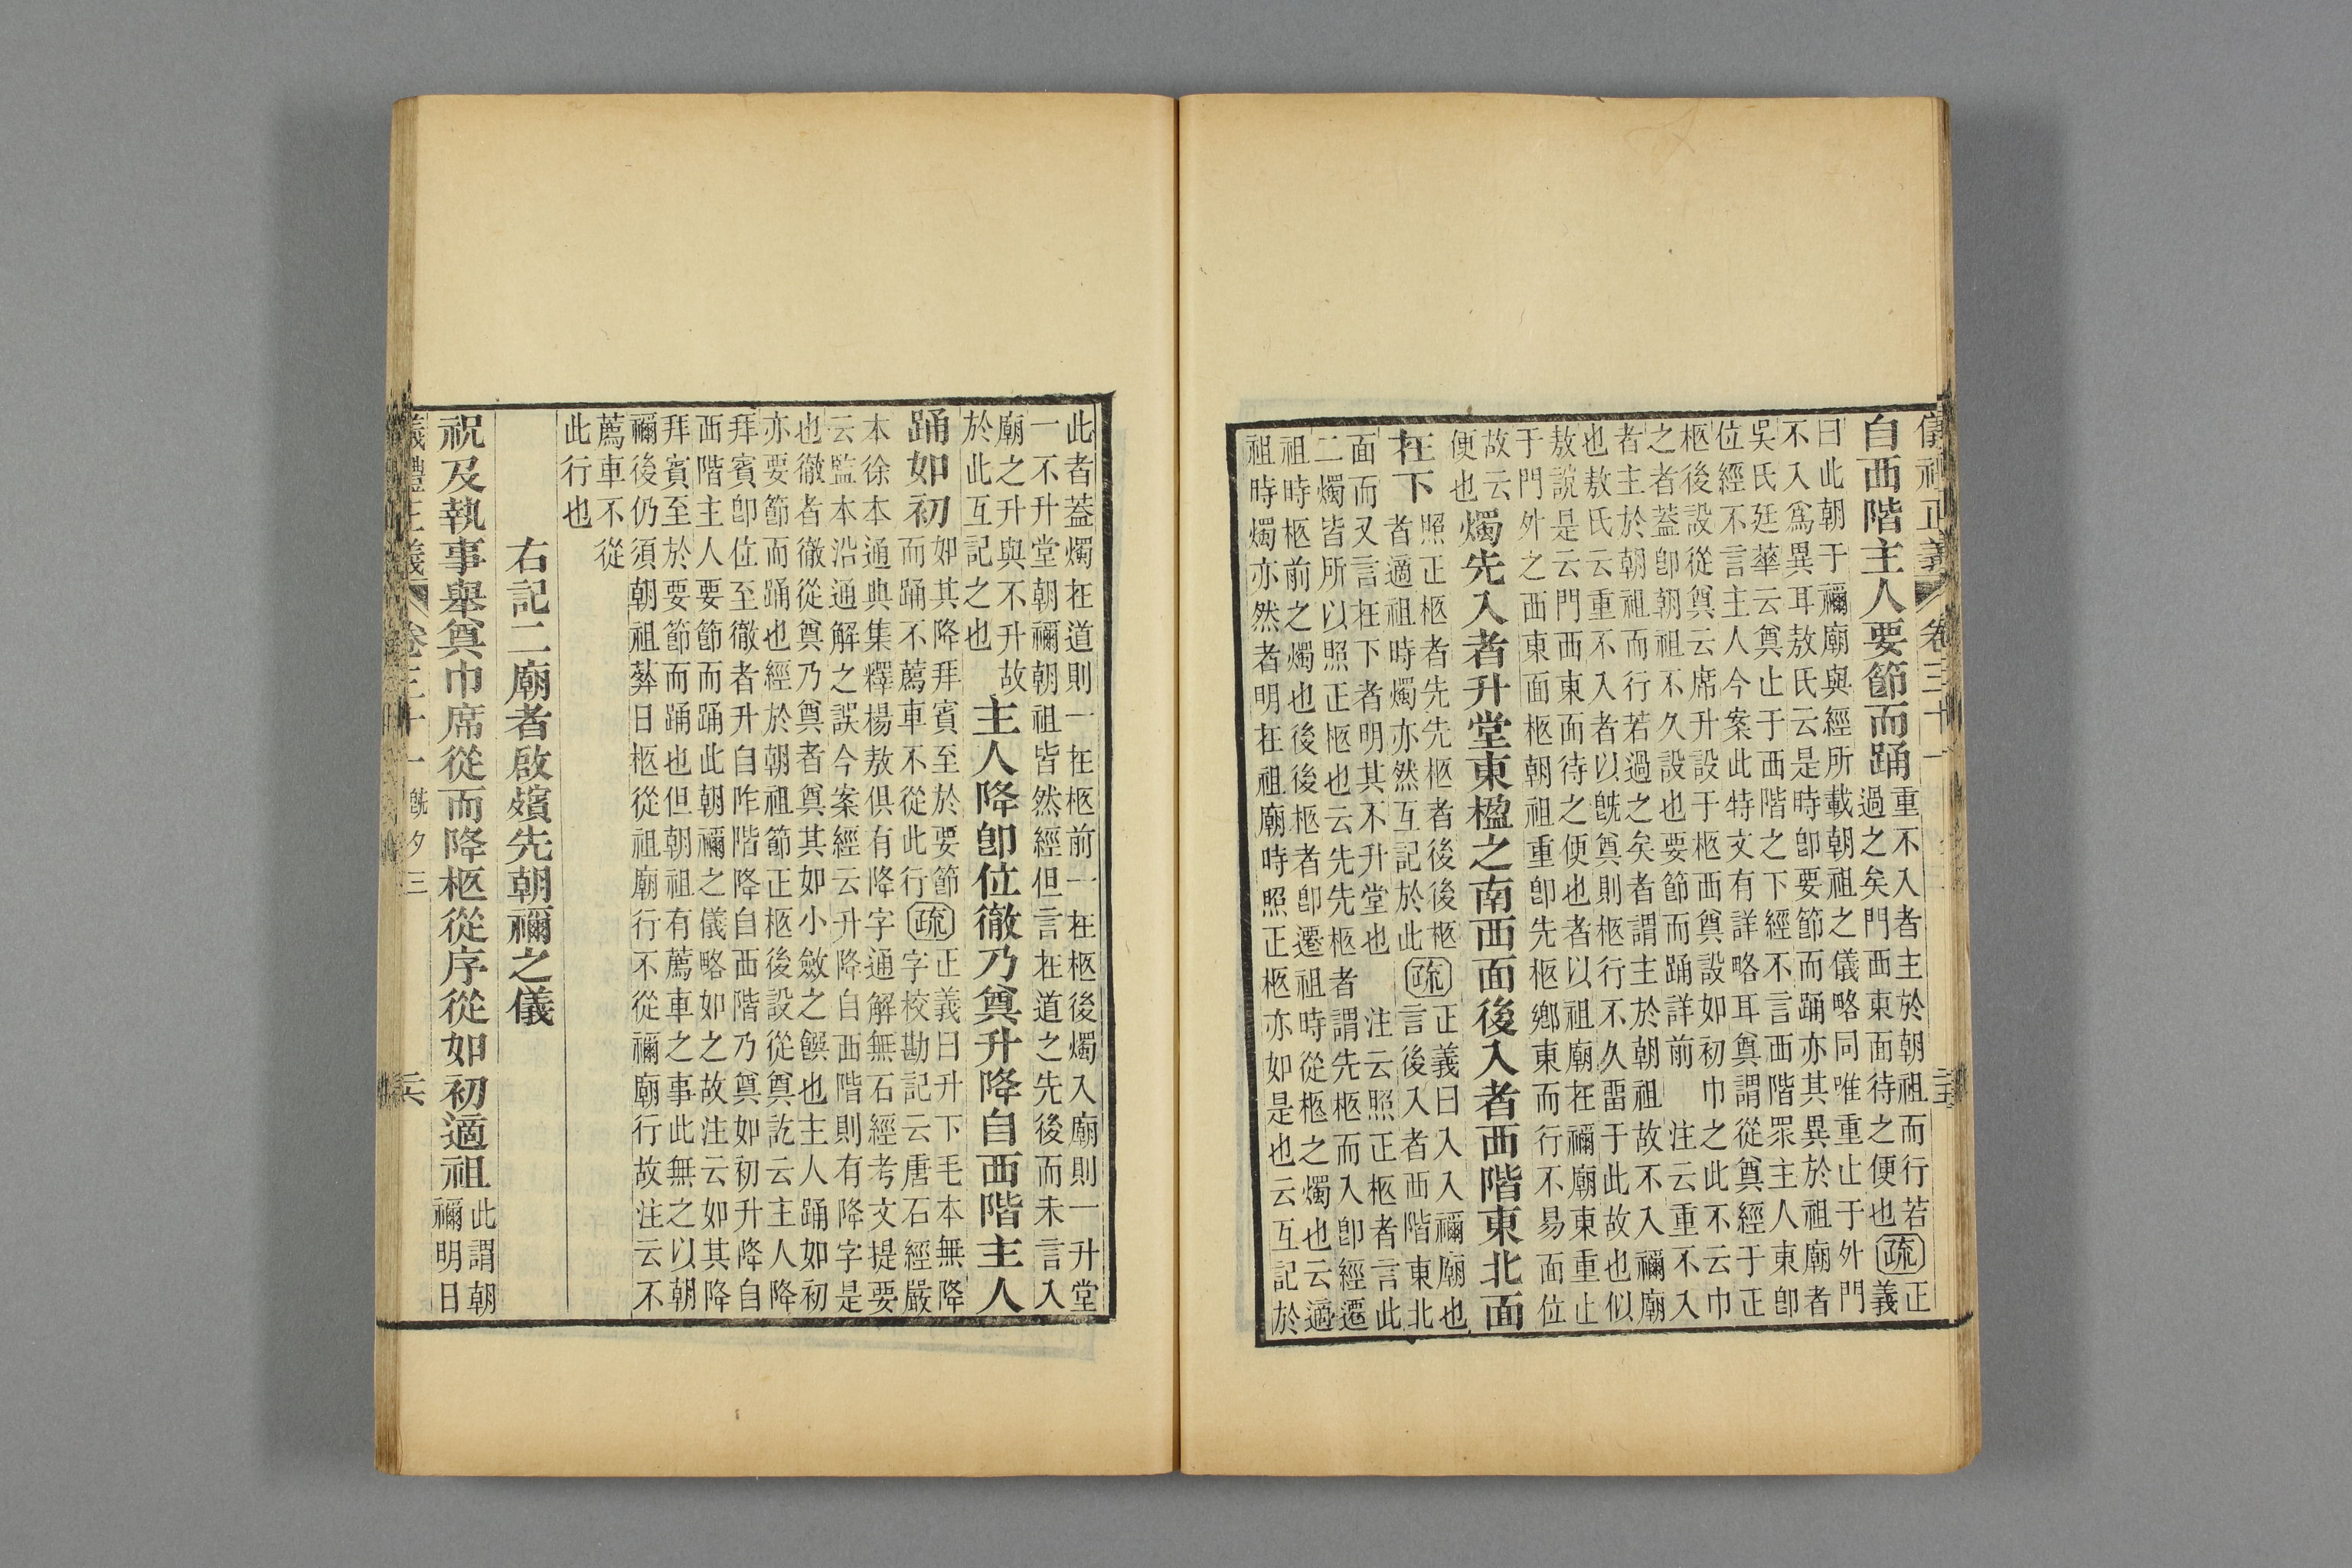 自西階主人要節而踊
重不入者主於朝祖而行若
過之矣門西東面待之便也
疏
正
義
曰此朝于禰廟與經所載朝祖之儀略同唯重止于外門
不入爲異耳敖氏云是時卽要節而踊亦其異於祖廟者
吳氏廷華云奠止于西階之下經不言西階眔主人東卽
位經不言主人今案此特文有詳略耳奠謂從奠經于正
柩後設從奠云席升設于柩西奠設如初巾之此不云巾
之者蓋卽朝祖不久設也要節而踊詳前　注云重不入
者主於朝祖而行若過之矣者謂主於朝祖故不入禰廟
也敖氏云重不入者以旣奠則柩行不久畱于此故也似
敖說是云門西東面待之便也者以祖廟在禰廟東重止
于門外之西東面柩朝祖重卽先柩鄉東而行不易面位
故云
便也
燭先入者升堂東楹之南西面後入者西階東北面
在下
照正柩者先先柩者後後柩
者適祖時燭亦然互記於此
疏
正義曰入入禰廟也
言後入者西階東北
面而又言在下者明其不升堂也　注云照正柩者言此
二燭皆所以照正柩也云先先柩者謂先柩而入卽經遷
祖時柩前之燭也後後柩者卽遷祖時從柩之燭也云適
祖時燭亦然者明在祖廟時照正柩亦如是也云互記於
此者蓋燭在道則一在柩前一在柩後燭入廟則一升堂
一不升堂朝禰朝祖皆然經但言在道之先後而未言入
廟之升與不升故
於此互記之也
主人降卽位徹乃奠升降自西階主人
踊如初
如其降拜賓至於要節
而踊不薦車不從此行
疏
正義曰升下毛本無降
字校勘記云唐石經嚴
本徐本通典集釋楊敖俱有降字通解無石經考文提要
云監本沿通解之誤今案經云升降自西階則有降字是
也徹者徹從奠乃奠者奠其如小斂之饌也主人踊如初
亦要節而踊也經於朝祖節正柩後設從奠訖云主人降
拜賓卽位至徹者升自阼階降自西階乃奠如初升降自
西階主人要節而踊此朝禰之儀略如之故注云如其降
拜賓至於要節而踊也但朝祖有薦車之事此無之以朝
禰後仍須朝祖葬日柩從祖廟行不從禰廟行故注云不
薦車不從
此行也
右記二廟者啟殯先朝禰之儀
祝及執事舉奠巾席從而降柩從序從如初適祖
此謂朝
禰明日
儀禮正義　卷三十一　旣夕三